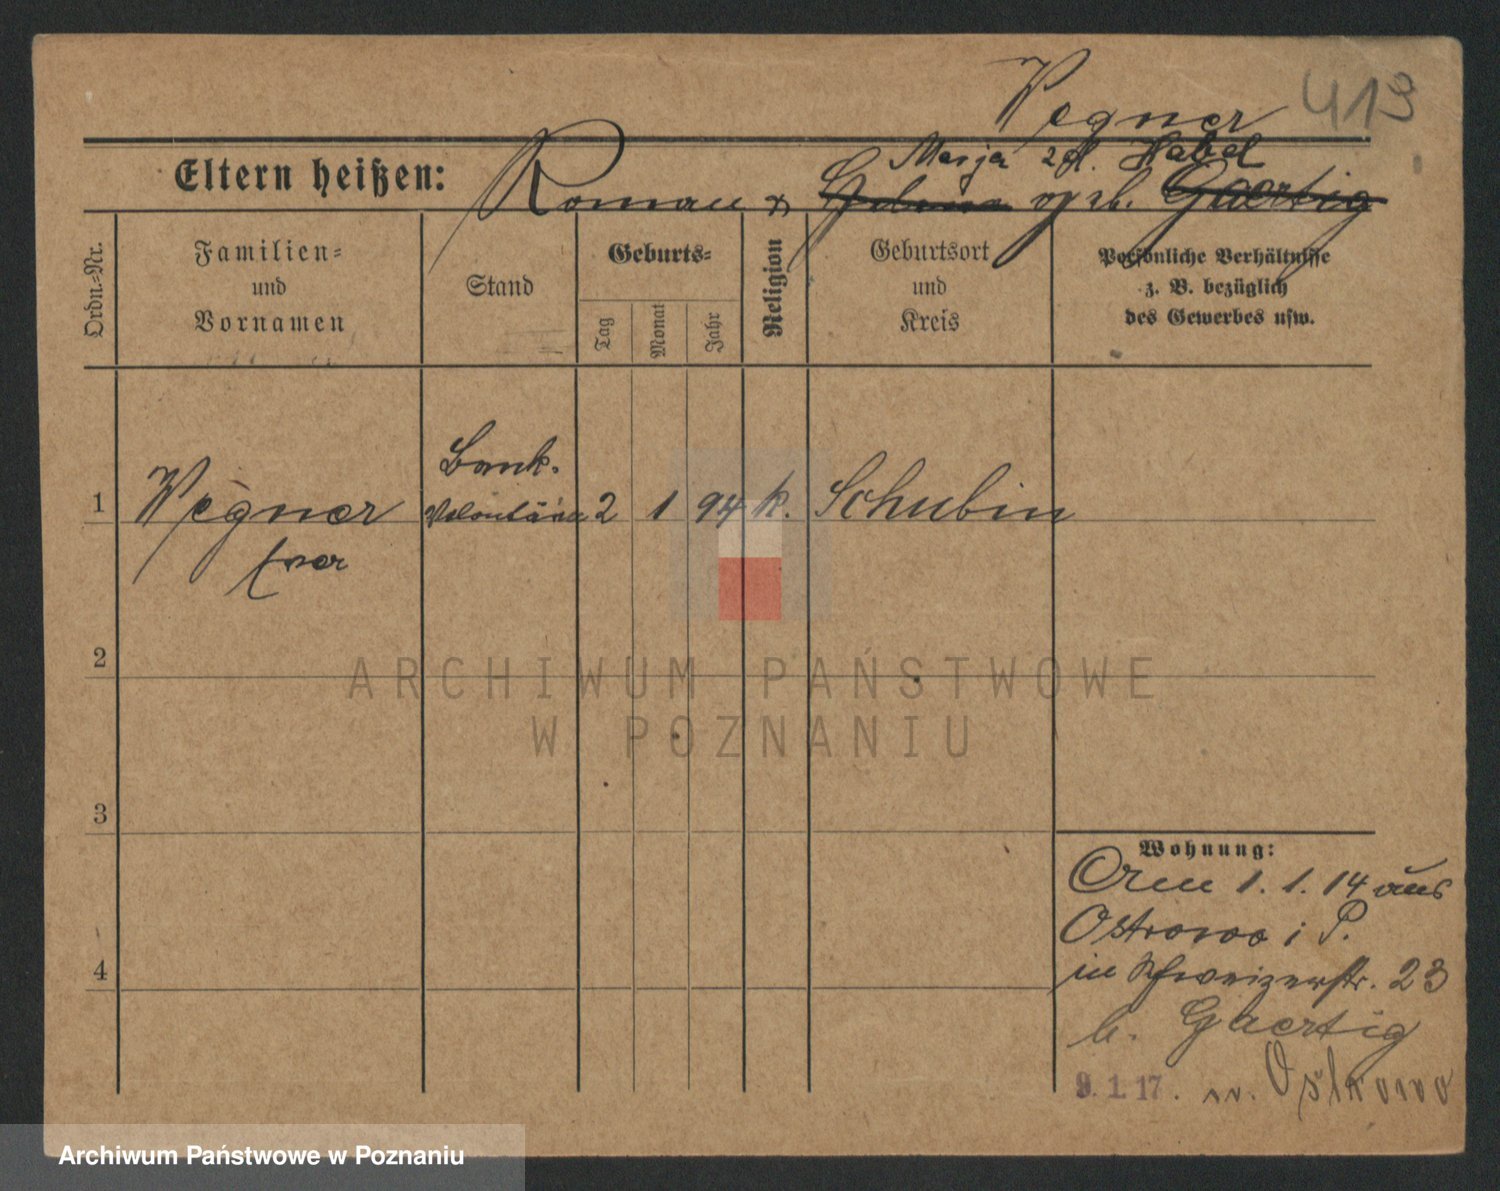 Wegner 413
Marja zd. Habel
Eltern heißen: Roman & geb. Gaertig
Ordn.-Nr.
Familien-
und
Vornamen
Stand
Geburts-
Tag
Monat
Jahr
Religion
Geburtsort
und
Kreis
Persönliche Verhältnisse
z. B. bezüglich
des Gewerbes usw.
Bank.
1 Wegner Volontär 2 1 94 k. Schubin
2
3
4
Wohnung:
1. 1. 14 aus
Ostrowo i P.
in Schweizerstr. 23
b. Gaertig
9. 1. 17. n. Ostrowo
ARCHIWUM PAŃSTWOWE
W POZNANIU
Archiwum Państwowe w Poznaniu